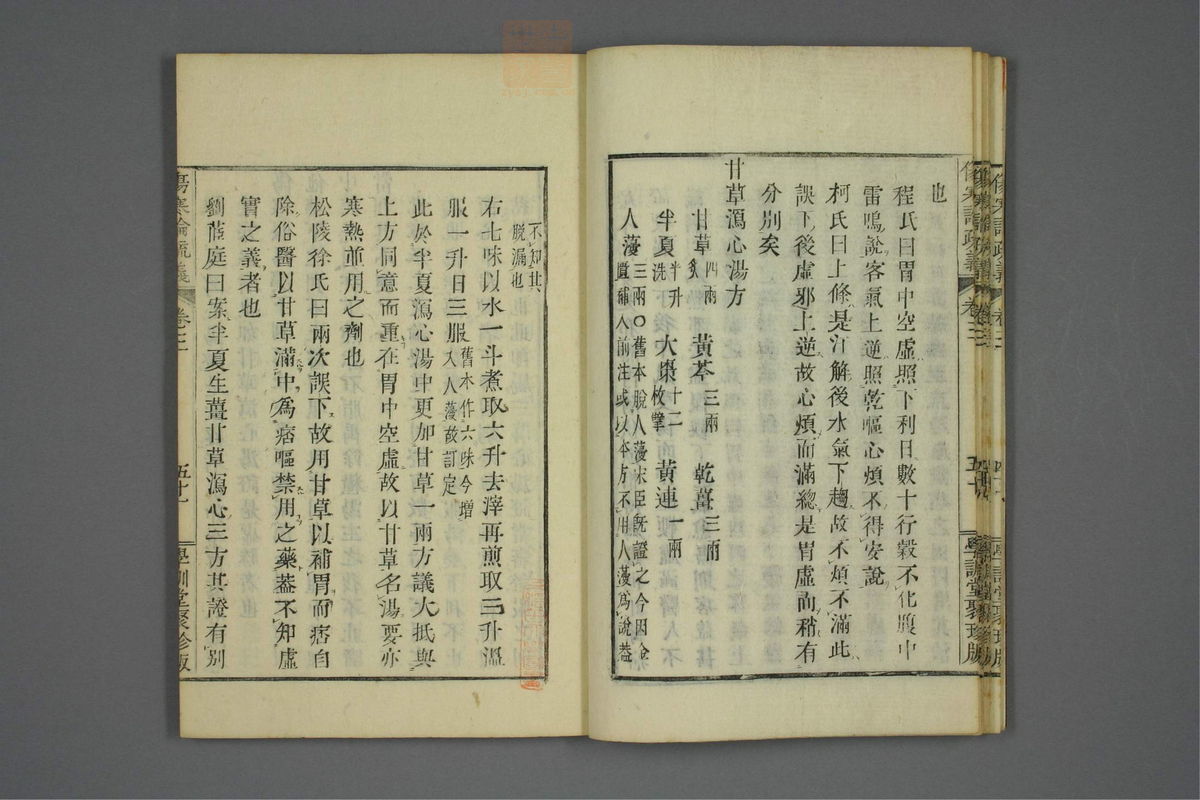 也
程氏曰胃中空虛照下利日數十行穀不化腹中
雷鳴說客氣上逆照乾嘔心煩不得安說
柯氏曰上條是汗解後水氣下趨故不煩不滿此
誤下後虛邪上逆故心煩而滿總是胃虛而稍有
分別矣
甘草瀉心湯方
甘草四兩炙 黃芩三兩 乾薑三兩
半夏半升洗 大棗十二枚擘 黃連一兩
人薓三兩〇舊本脫人薓宋臣旣證之今因金
匱補入前注或以本方不用人薓為說葢
不知其
脫漏也
右七味以水一斗煮取六升去滓再煎取三升溫
服一升日三服舊本作六味今增
入人薓故訂定
此於半夏瀉心湯中更加甘草一兩方議大抵與
上方同意而重在胃中空虛故以甘草名湯要亦
寒熱並用之劑也
松陵徐氏曰兩次誤下故用甘草以補胃而痞自
除俗醫以甘草滿中為痞嘔禁用之藥葢不知虛
實之義者也
劉茝庭曰案半夏生薑甘草瀉心三方其證有別
傷寒論疏義 卷三 五十一 學訓堂聚珍版